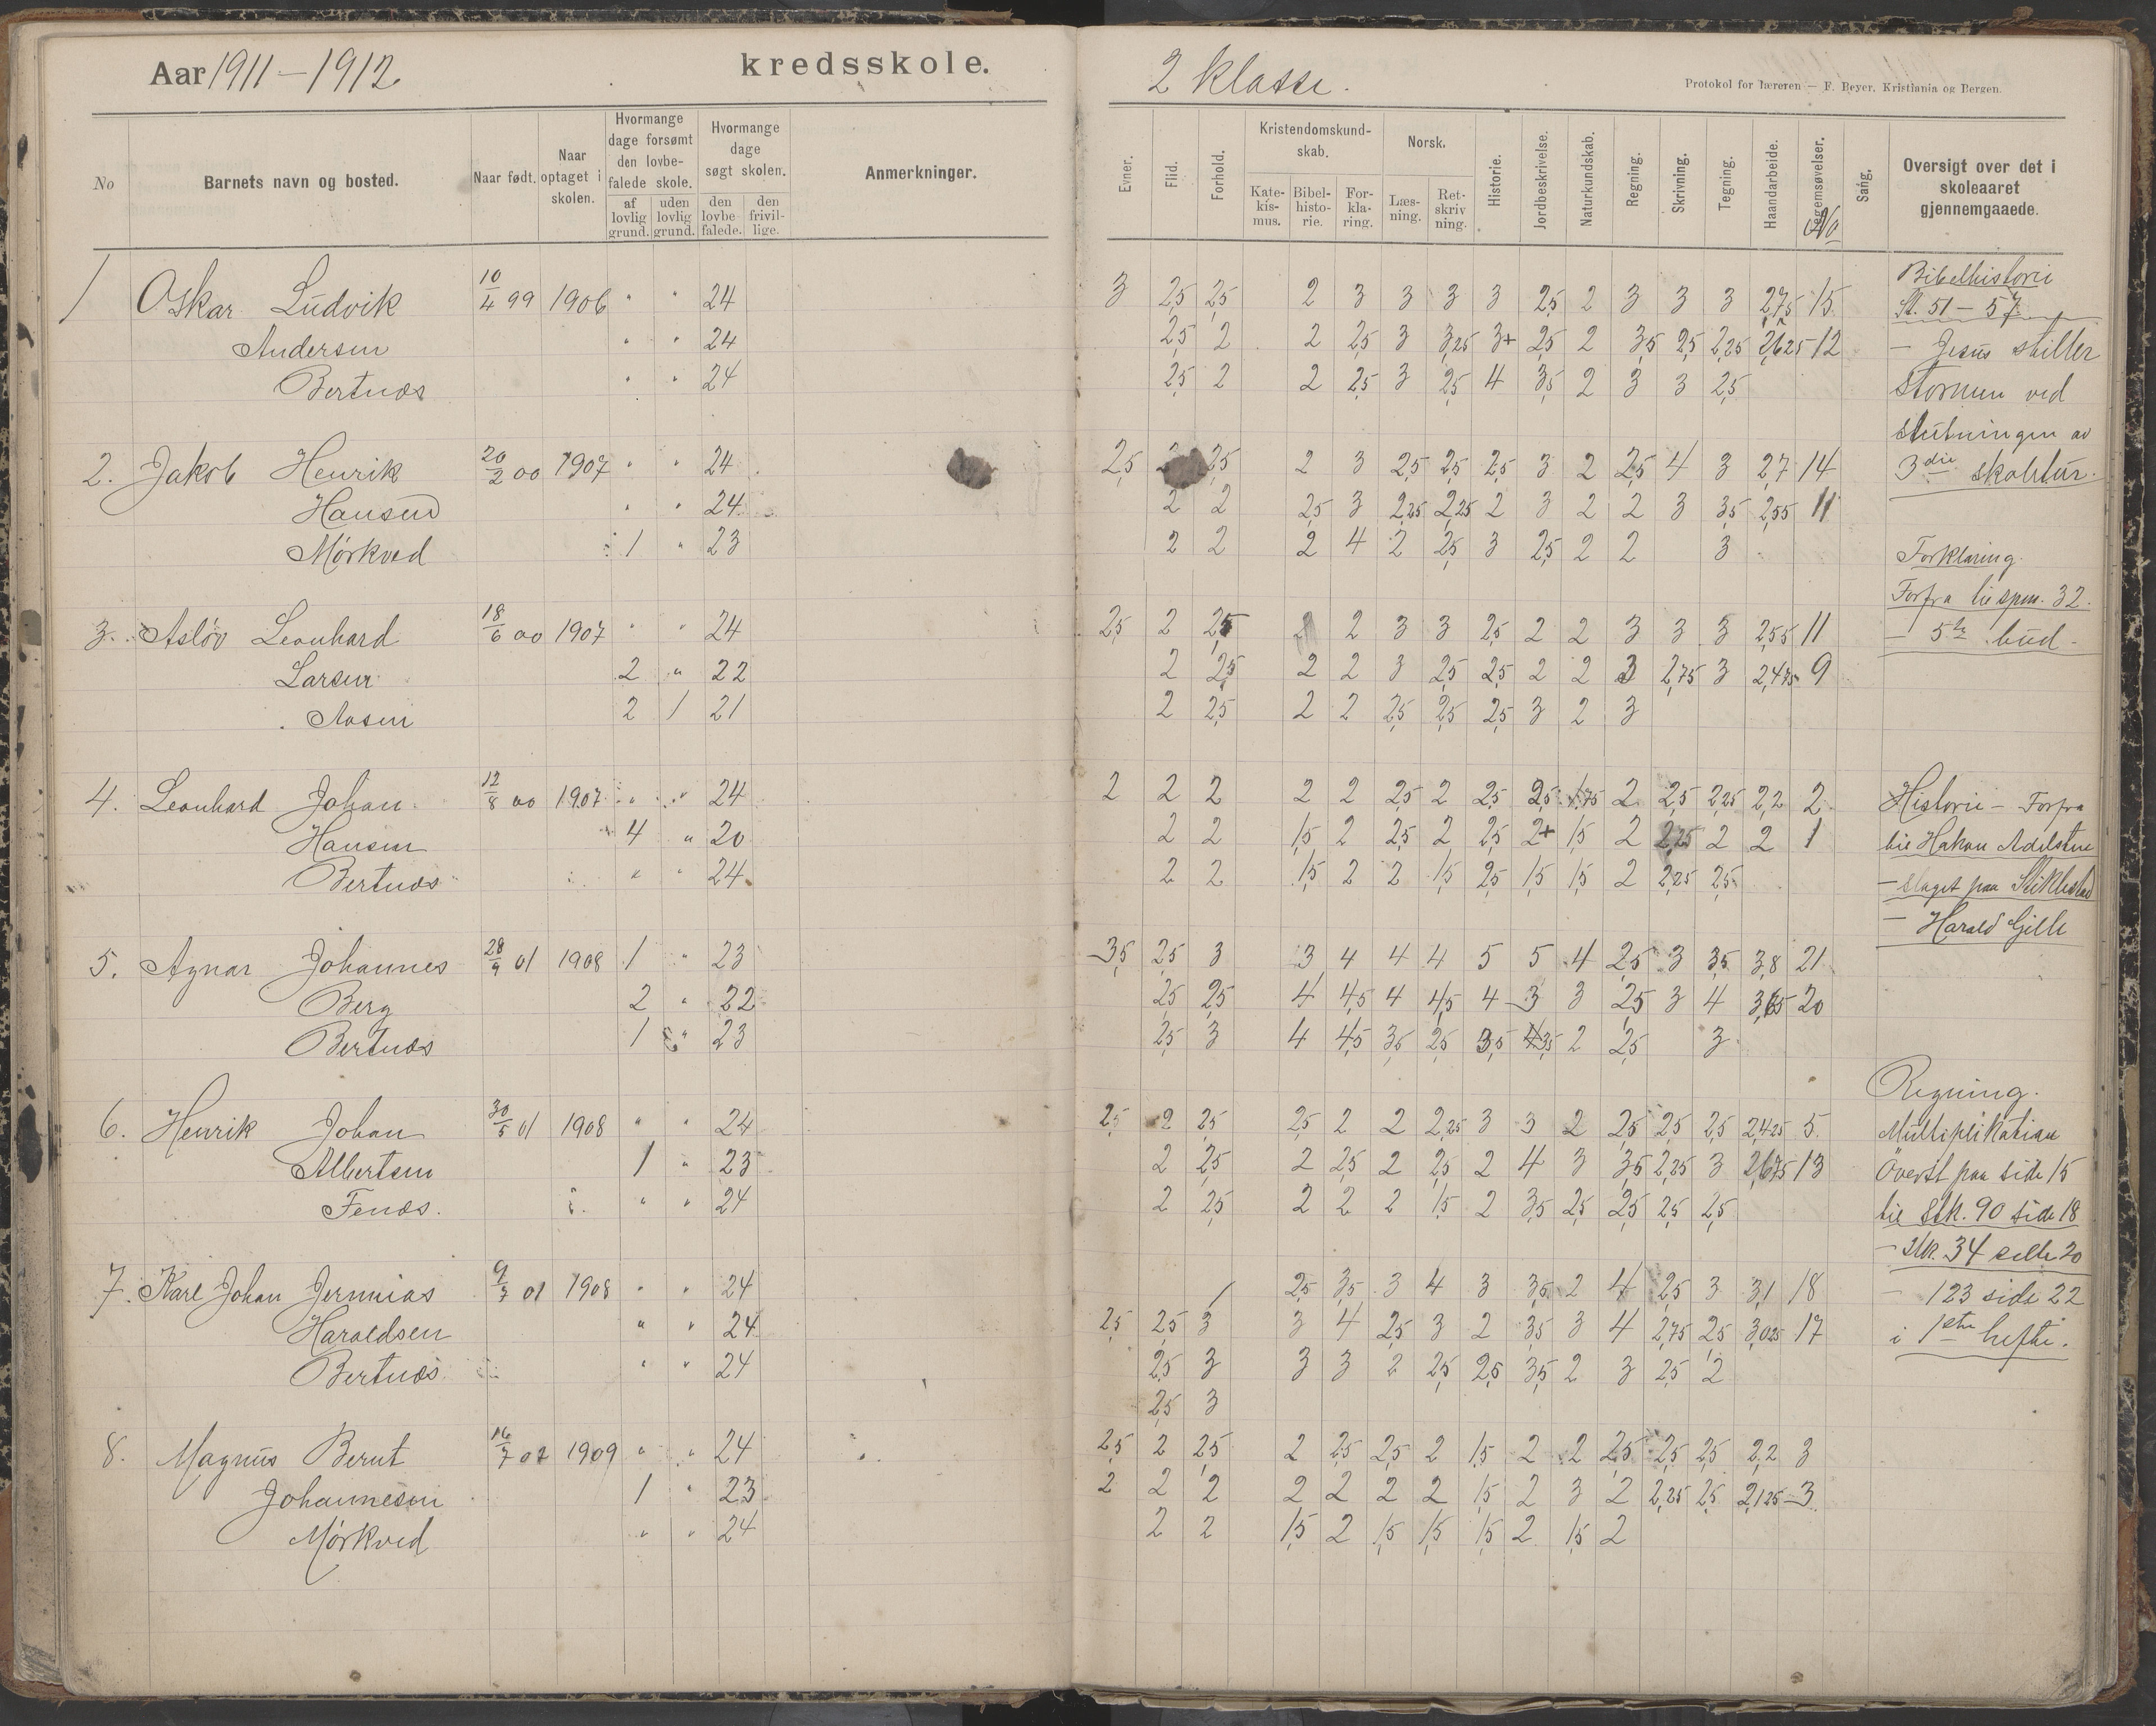 Aar 1911 – 1912 kredsskole. 2 klasse.
Protokol for læreren — F. Beyer, Kristiania og Bergen.
No Barnets navn og bosted. Naar født. Naar optaget i skolen. Hvormange dage forsømt den lovbefalede skole. af lovlig grund. uden lovlig grund. Hvormange dage søgt skolen. den lovbefalede. den frivillige. Anmerkninger.
Evner. Flid. Forhold. Kristendomskundskab. Katekismus. Bibelhistorie. Forklaring. Norsk. Læsning. Retskrivning. Historie. Jordbeskrivelse. Naturkundskab. Regning. Skrivning. Tegning. Haandarbeide. Legemsøvelser. No Sang. Oversigt over det i skoleaaret gjennemgaaede.
1 Oskar Ludvik 10/4 99 1906 " " 24
Andersen " " 24
Bertnæs " " 24
2. Jakob Henrik 20/2 00 1907 " " 24
Hansen " " 24
Mørkved 1 " 23
3. Asløv Leonhard 18/6 00 1907 " " 24
Larsen 2 " 22
Aasen 2 1 21
4. Leonhard Johan 12/8 00 1907 " " 24
Hansen 4 " 20
Bertnæs " " 24
5. Agnar Johannes 28/9 01 1908 1 " 23
Berg 2 " 22
Bertnæs 1 " 23
6. Henrik Johan 30/5 01 1908 " " 24
Albertsen 1 " 23
Fenæs. " " 24
7. Karl Johan Jermias 9/7 01 1908 " " 24
Haraldsen " " 24
Bertnæs " " 24
8. Magnus Bernt 16/7 02 1909 " " 24
Johannesen 1 " 23
Mørkved " " 24
3 2,5 2,5 2 3 3 3 3 2,5 2 3 3 3 2,75 15
2,5 2 2 2,5 3 3,25 3+ 2,5 2 3,5 2,5 2,25 2,625 12
2,5 2 2 2,5 3 2,5 4 3,5 2 3 3 2,5
2,5 2,5 2 3 2,5 2,5 2,5 3 2 2,5 4 3 2,7 14
2 2 2,5 3 2,25 2,25 2 3 2 2 3 3,5 2,55 11
2 2 2 4 2 2,5 3 2,5 2 2 3
2,5 2 2,5 2 3 3 2,5 2 2 3 3 3 2,55 11
2 2,5 2 2 3 2,5 2,5 2 2 3 2,75 3 2,475 9
2 2,5 2 2 2,5 2,5 2,5 3 2 3
2 2 2 2 2 2,5 2 2,5 2,5 1,75 2 2,5 2,25 2,2 2
2 2 1,5 2 2,5 2 2,5 2+ 1,5 2 2,25 2 2 1
2 2 1,5 2 2 1,5 2,5 1,5 1,5 2 2,25 2,5
3,5 2,5 3 3 4 4 4 5 5 4 2,5 3 3,5 3,8 21
2,5 2,5 4 4,5 4 4,5 4 3 3 2,5 3 4 3,65 20
2,5 3 4 4,5 3,5 2,5 3,5 3,5 2 2,5 3
2,5 2 2,5 2,5 2 2 2,25 3 3 2 2,5 2,5 2,5 2,425 5
2 2,5 2 2,5 2 2,5 2 4 3 3,5 2,25 3 2,675 13
2 2,5 2 2 2 1,5 2 3,5 2,5 2,5 2,5 2,5
2,5 3,5 3 4 3 3,5 2 4 2,5 3 3,1 18
2,5 2,5 3 3 4 2,5 3 2 3,5 3 4 2,75 2,5 3,025 17
2,5 3 3 3 2 2,5 2,5 3,5 2 3 2,5 2
2,5 3
2,5 2 2,5 2 2,5 2,5 2 1,5 2 2 2,5 2,5 2,5 2,2 3
2 2 2 2 2 2 2 1,5 2 3 2 2,25 2,5 2,125 3
2 2 1,5 2 1,5 1,5 1,5 2 1,5 2
Bibelhistorie
St. 51 – 57
– Jesus stiller
stormen ved
slutningen av
3die skoletur.
Forklaring.
Forfra til spm. 32.
– 5te bud –
Historie – Forfra
til Hakon Adelsten
– slaget paa Stiklestad
– Harald Gille
Regning.
Multiplikation
Øverst paa side 15
til Stk. 90 side 18
– Stk. 34 side 20
– 123 side 22
i 1ste hefte.